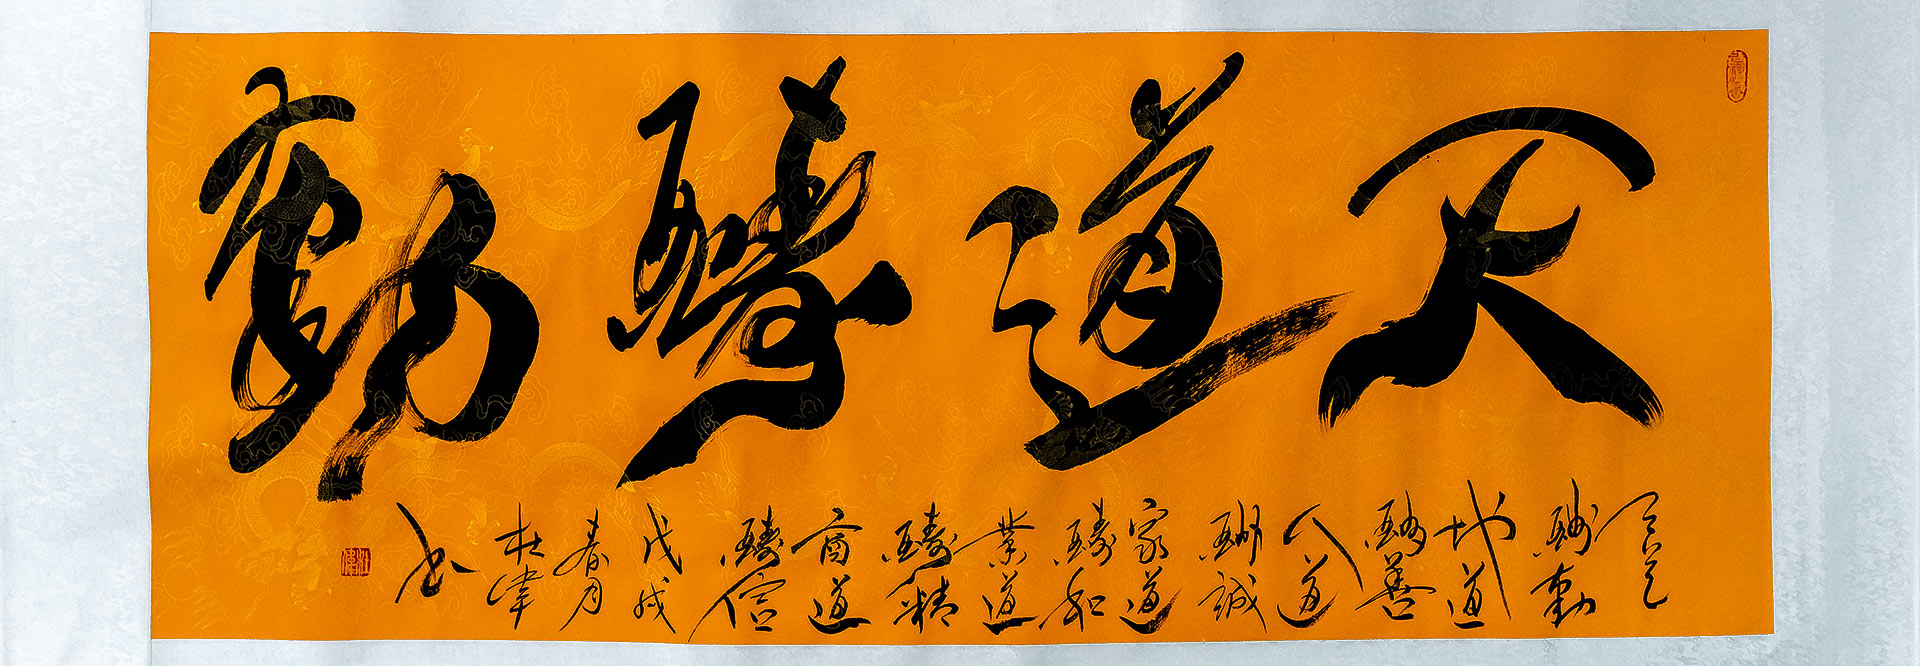 天道酬勤
天道
酬勤
地道
酬善
人道
酬誠
家道
酬和
業道
酬精
商道
酬信
戊戌
春月
杜偉
书